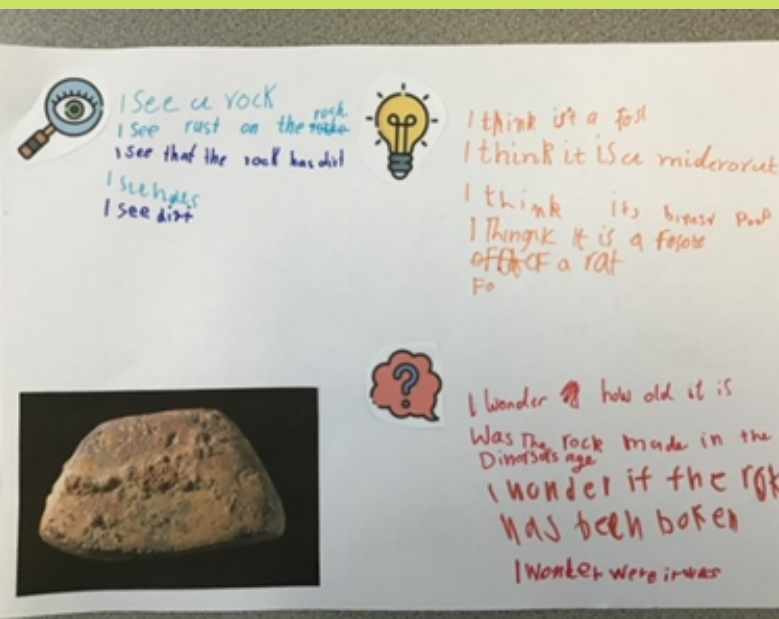 I see a rock
I see rust on the rocke rock
I see that the rock has dirt
I see
I see dirt
I think is't a fosl
I think it is a miderorut
I think its Poop
I Thingk it is a Fosole
OF a rat
Fo
I wonder how old it is
Was The rock made in the
Dinorsors age
I wonder if the rok
has been boken
I wonker were it was